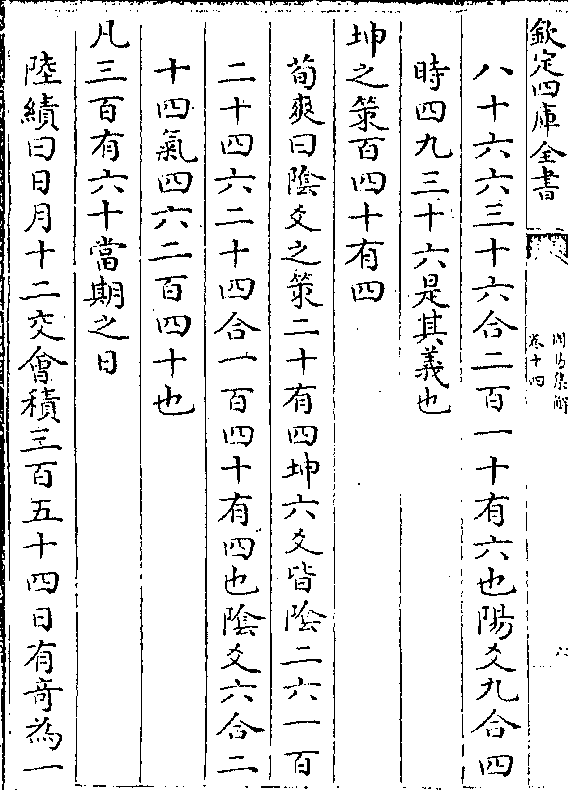 欽定四庫全書
周易集解
卷十四
六
八十六六三十六合二百一十有六也陽爻九合四
時四九三十六是其義也
坤之策百四十有四
荀爽曰陰爻之策二十有四坤六爻皆陰二六一百
二十四六二十四合一百四十有四也陰爻六合二
十四氣四六二百四十也
凡三百有六十當期之日
陸績曰日月十二交會積三百五十四日有竒為一